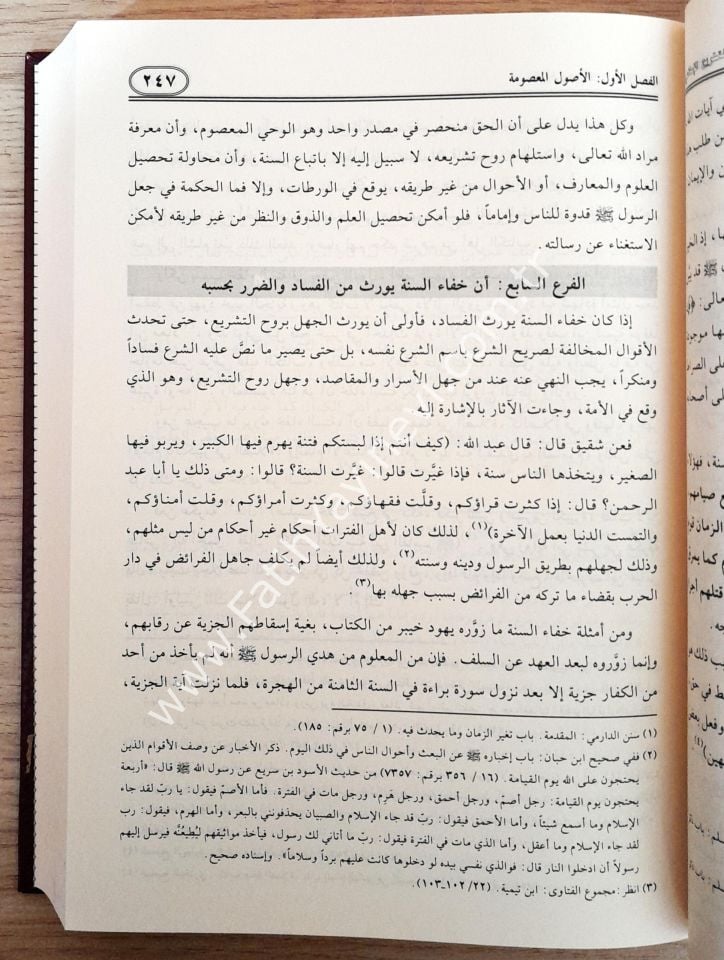 الفصل الأول: الأصول المعصومة
٢٤٧
وكل هذا يدل على أن الحق منحصر في مصدر واحد وهو الوحي المعصوم، وأن معرفة
مراد الله تعالى، واستلهام روح تشريعه، لا سبيل إليه إلا باتباع السنة، وأن محاولة تحصيل
العلوم والمعارف، أو الأحوال من غير طريقه، يوقع في الورطات، وإلا فما الحكمة في جعل
الرسول ﷺ قدوة للناس وإماماً، فلو أمكن تحصيل العلم والذوق والنظر من غير طريقه لأمكن
الاستغناء عن رسالته.
الفرع السابع: أن خفاء السنة يورث من الفساد والضرر بحسبه
إذا كان خفاء السنة يورث الفساد، فأولى أن يورث الجهل بروح التشريع، حتى تحدث
الأقوال المخالفة لصريح الشرع باسم الشرع نفسه، بل حتى يصير ما نصَّ عليه الشرع فساداً
ومنكراً، يجب النهي عنه عند من جهل الأسرار والمقاصد، وجهل روح التشريع، وهو الذي
وقع في الأمة، وجاءت الآثار بالإشارة إليه.
فعن شقيق قال: قال عبد الله: (كيف أنتم إذا لبستكم فتنة يهرم فيها الكبير، ويربو فيها
الصغير، ويتخذها الناس سنة، فإذا غيَّرت قالوا: غيَّرت السنة؟ قالوا: ومتى ذلك يا أبا عبد
الرحمن؟ قال: إذا كثرت قراؤكم، وقلَّت فقهاؤكم، وكثرت أمراؤكم، وقلت أمناؤكم،
والتمست الدنيا بعمل الآخرة)(١)، لذلك كان لأهل الفترات أحكام غير أحكام من ليس مثلهم،
وذلك لجهلهم بطريق الرسول ودينه وسنته(٢)، ولذلك أيضاً لم يكلف جاهل الفرائض في دار
الحرب بقضاء ما تركه من الفرائض بسبب جهله بها(٣).
ومن أمثلة خفاء السنة ما زوَّره يهود خيبر من الكتاب، بغية إسقاطهم الجزية عن رقابهم،
وإنما زوَّروه لبعد العهد عن السلف. فإن من المعلوم من هدي الرسول ﷺ أنه لم يأخذ من أحد
من الكفار جزية إلا بعد نزول سورة براءة في السنة الثامنة من الهجرة، فلما نزلت آية الجزية،
(١) سنن الدارمي: المقدمة. باب تغير الزمان وما يحدث فيه. (١ / ٧٥ برقم: ١٨٥).
(٢) ففي صحيح ابن حبان: باب إخباره ﷺ عن البعث وأحوال الناس في ذلك اليوم. ذكر الأخبار عن وصف الأقوام الذين
يحتجون على الله يوم القيامة. (١٦ / ٣٥٦ برقم: ٧٣٥٧) من حديث الأسود بن سريع عن رسول الله ﷺ قال: «أربعة
يحتجون يوم القيامة: رجل أصمّ، ورجل أحمق، ورجل هَرِم، ورجل مات في الفترة. فأما الأصمّ فيقول: يا ربّ لقد جاء
الإسلام وما أسمع شيئاً، وأما الأحمق فيقول: ربّ قد جاء الإسلام والصبيان يحذفونني بالبعر، وأما الهرم، فيقول: رب
لقد جاء الإسلام وما أعقل، وأما الذي مات في الفترة فيقول: ربّ ما أتاني لك رسول، فيأخذ مواثيقهم لَيُطِيعُنَّه فيرسل إليهم
رسولاً أن ادخلوا النار قال: فوالذي نفسي بيده لو دخلوها كانت عليهم برداً وسلاماً». وإسناده صحيح.
(٣) انظر: مجموع الفتاوى: ابن تيمية. (٢٢/ ١٠٢ـ١٠٣).
www.Fatihyayinevi.com.tr